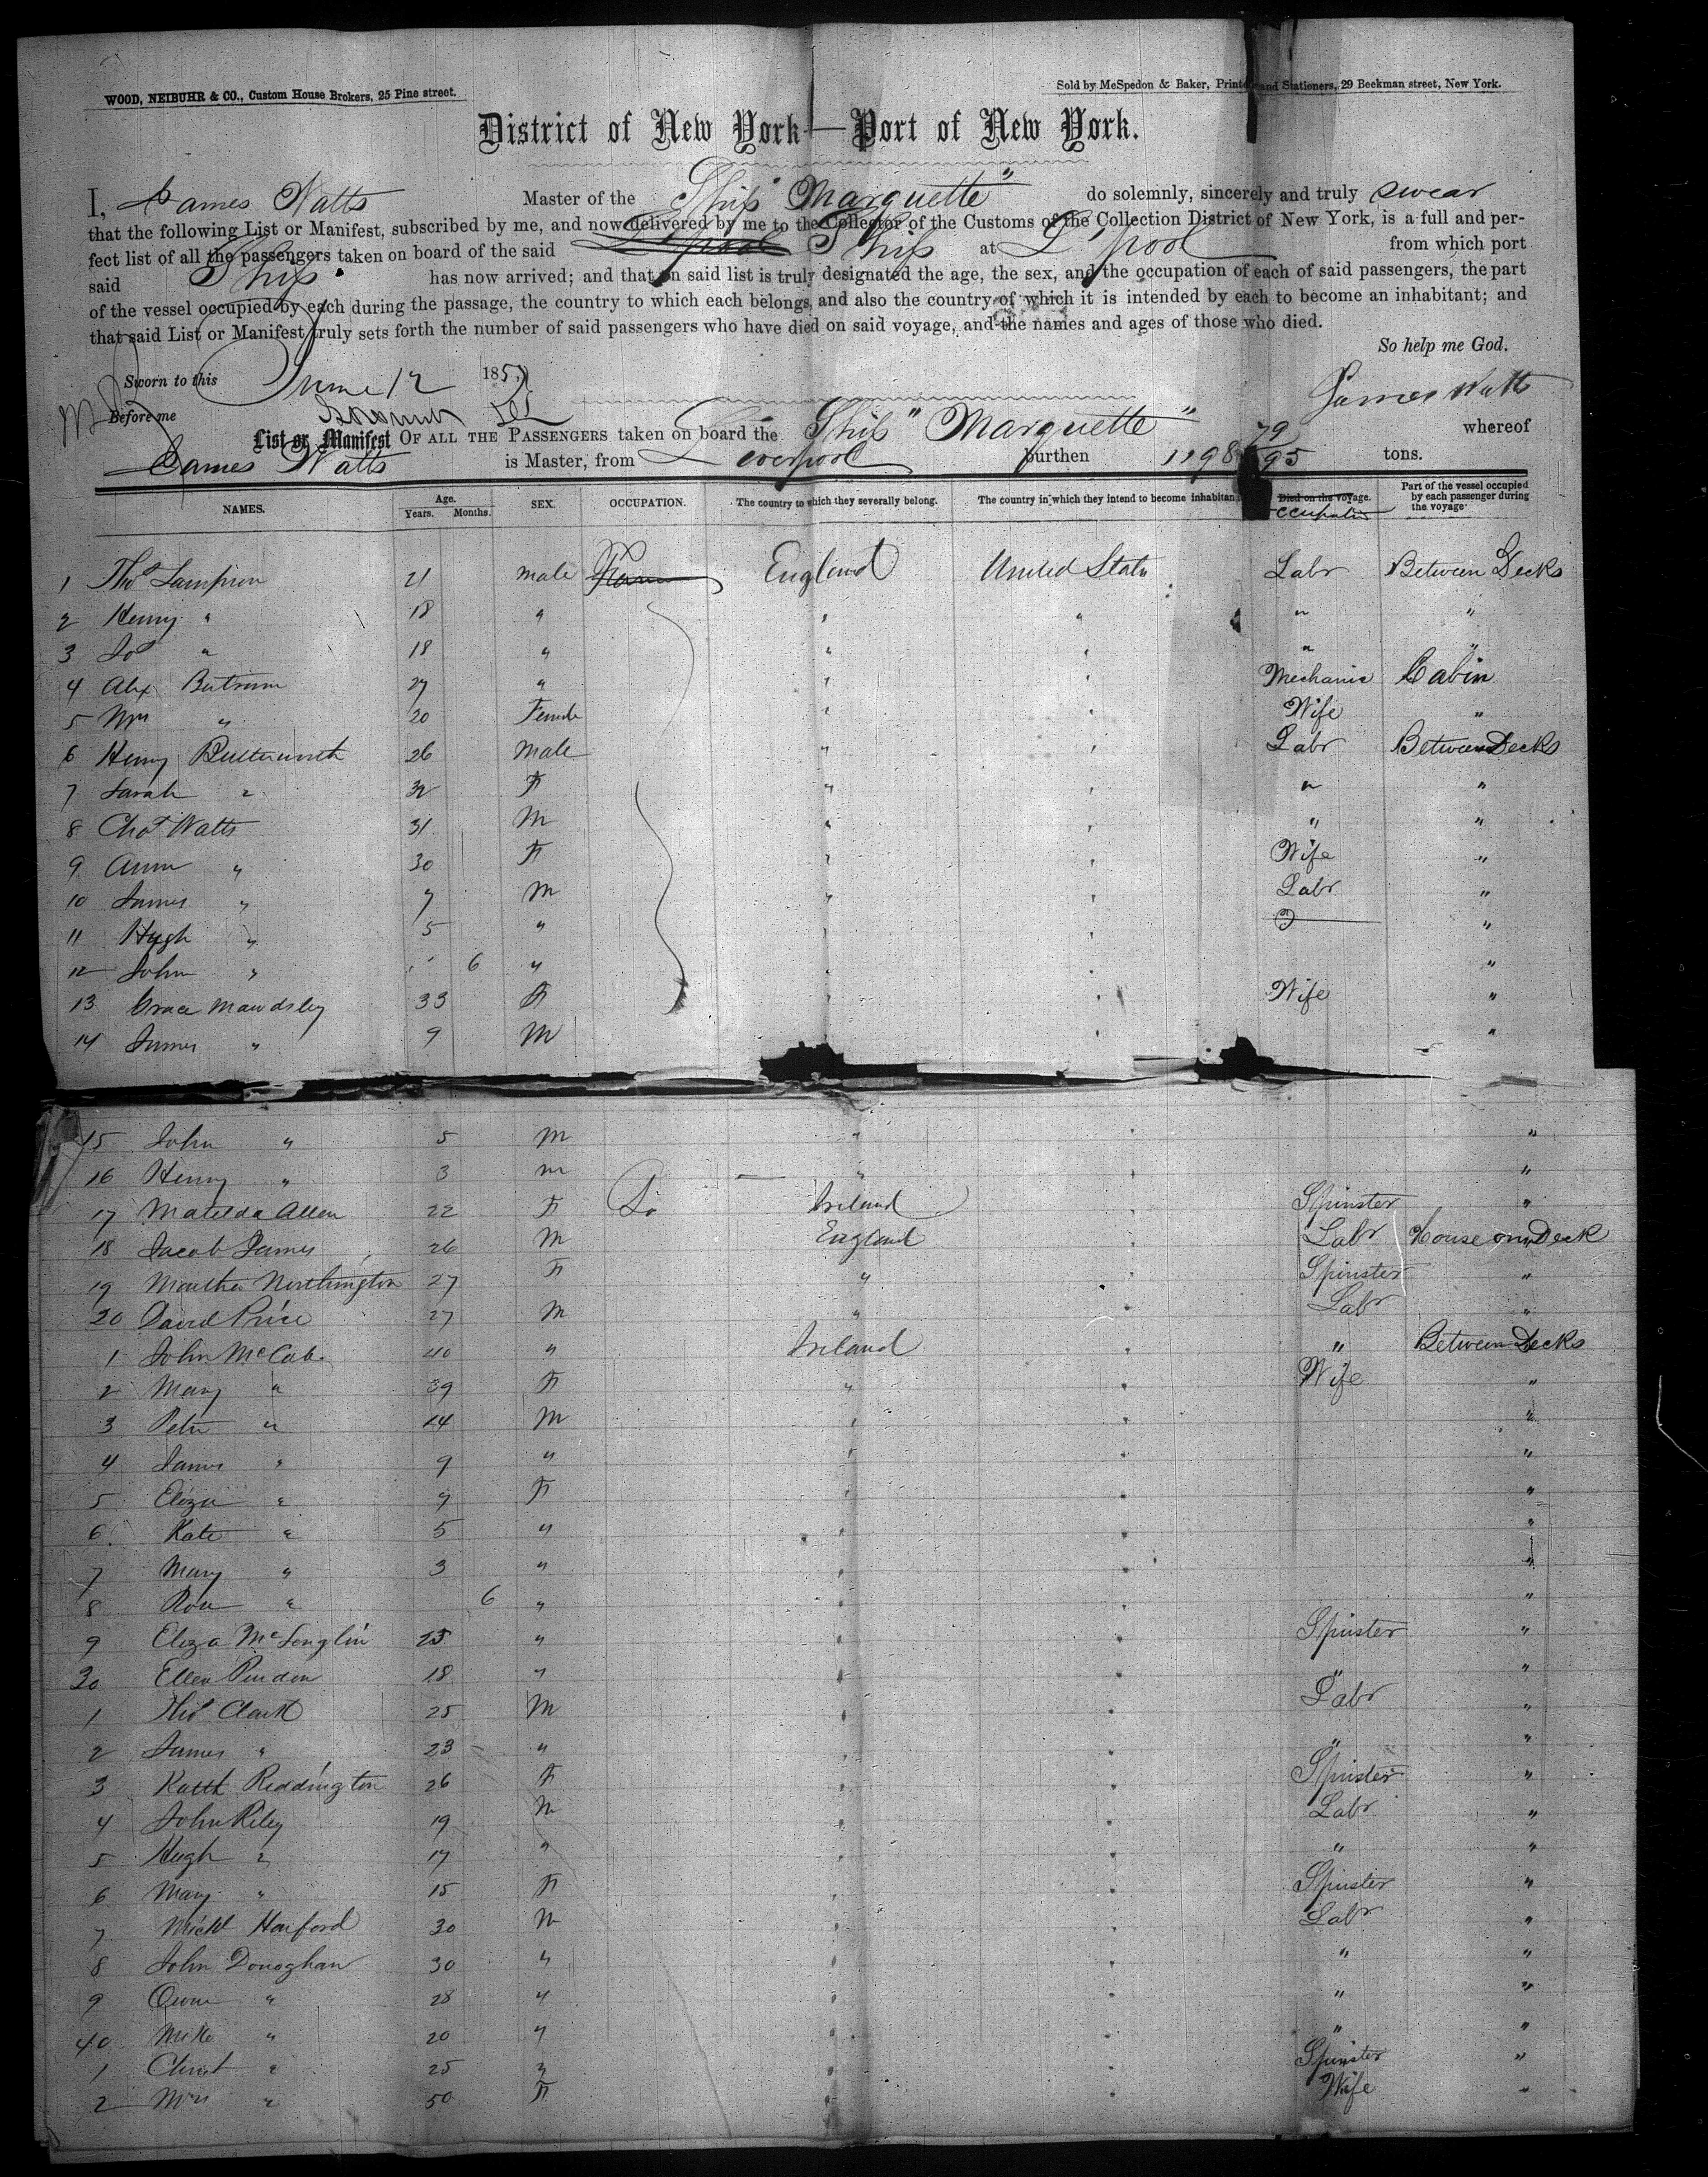 WOOD, NEIBUHR & CO., Custom House Brokers, 25 Pine street.
Sold by McSpedon & Baker, Printers and Stationers, 29 Beekman street, New York.
District of New York—Port of New York.
I, James Watts Master of the Ship "Marquette" do solemnly, sincerely and truly swear
that the following List or Manifest, subscribed by me, and now delivered by me to the Collector of the Customs of the Collection District of New York, is a full and per-
fect list of all the passengers taken on board of the said L'pool Ship at L'pool from which port
said Ship has now arrived; and that on said list is truly designated the age, the sex, and the occupation of each of said passengers, the part
of the vessel occupied by each during the passage, the country to which each belongs, and also the country of which it is intended by each to become an inhabitant; and
that said List or Manifest truly sets forth the number of said passengers who have died on said voyage, and the names and ages of those who died.
So help me God.
Sworn to this June 12 1857
James Watts
Before me
List or Manifest OF ALL THE PASSENGERS taken on board the Ship "Marquette" whereof
James Watts is Master, from Liverpool burthen 1198 79/95 tons.
NAMES. Age. Years. Months. SEX. OCCUPATION. The country to which they severally belong. The country in which they intend to become inhabitan Died on the voyage. Occupation Part of the vessel occupied by each passenger during the voyage
1 Thos Lampson 21 male Farm England United State Labr Between Decks
2 Henry " 18 " " " " "
3 Jos " 18 " " " " "
4 Alex 27 " " " Mechanic Cabin
5 Mrs " 20 Female " " Wife "
6 Henry Butterworth 26 Male " " Labr Between Decks
7 Sarah " 32 F " " " "
8 Chas Watts 31 M " " " "
9 Ann " 30 F " " Wife "
10 James " 7 M " " Labr "
11 Hugh " 5 " " " "
12 John " 6 " " "
13 Grace Mawdsley 33 F " " Wife "
14 James " 9 M " "
15 John " 5 M " " "
16 Henry " 3 m " " "
17 Matilda Allen 22 F Do Ireland " Spinster "
18 Jacob James 26 M England " Labr House on Deck
19 Martha Northington 27 F " " Spinster "
20 David Price 27 M " " Labr "
1 John McCab. 40 " Ireland " " Between Decks
2 Mary " 39 F " " Wife "
3 Peter " 14 M " " "
4 James " 9 " " " "
5 Eliza " 7 F " " "
6 Kate " 5 " " " "
7 Mary " 3 " " " "
8 Rose " 6 " " " "
9 Eliza McLonglin 25 " " " Spinster "
30 Ellen Purdon 18 " " " " "
1 Thos Clark 25 M " " Labr "
2 James " 23 " " " " "
3 Kath Reddington 26 F " " Spinster "
4 John Riley 19 M " " Labr "
5 Hugh " 17 " " " " "
6 Mary " 15 F " " Spinster "
7 Michl Harford 30 M " " Labr "
8 John Donoghan 30 " " " " "
9 Owen " 28 " " " " "
40 Mike " 20 " " " " "
1 Christ " 25 " " " Spinster "
2 Mrs " 50 F " " Wife "